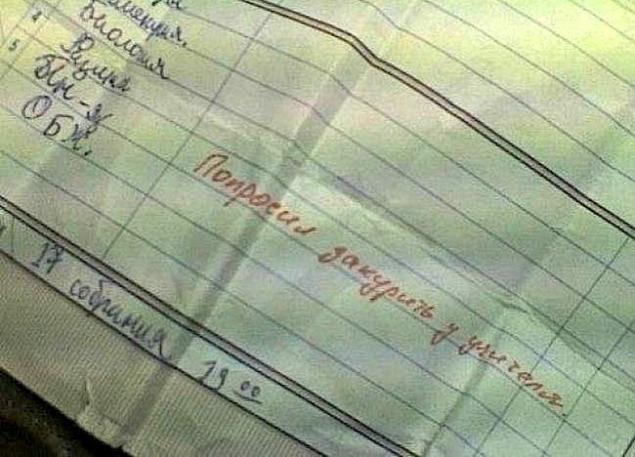 4 Биология
5 Физика
Ин-я
ОБЖ.
Попросил закурить у учителя.
17 собрания 19 00